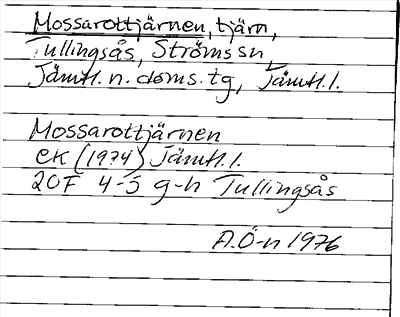 Mossarottjärnen, tjärn,
Tullingsås, Ströms sn,
Jämtl. n. doms. tg, Jämtl. l.
Mossarottjärnen
EK (1974) Jämtl. l.
20F 4-5 g-h Tullingsås
A.Ö-n 1976